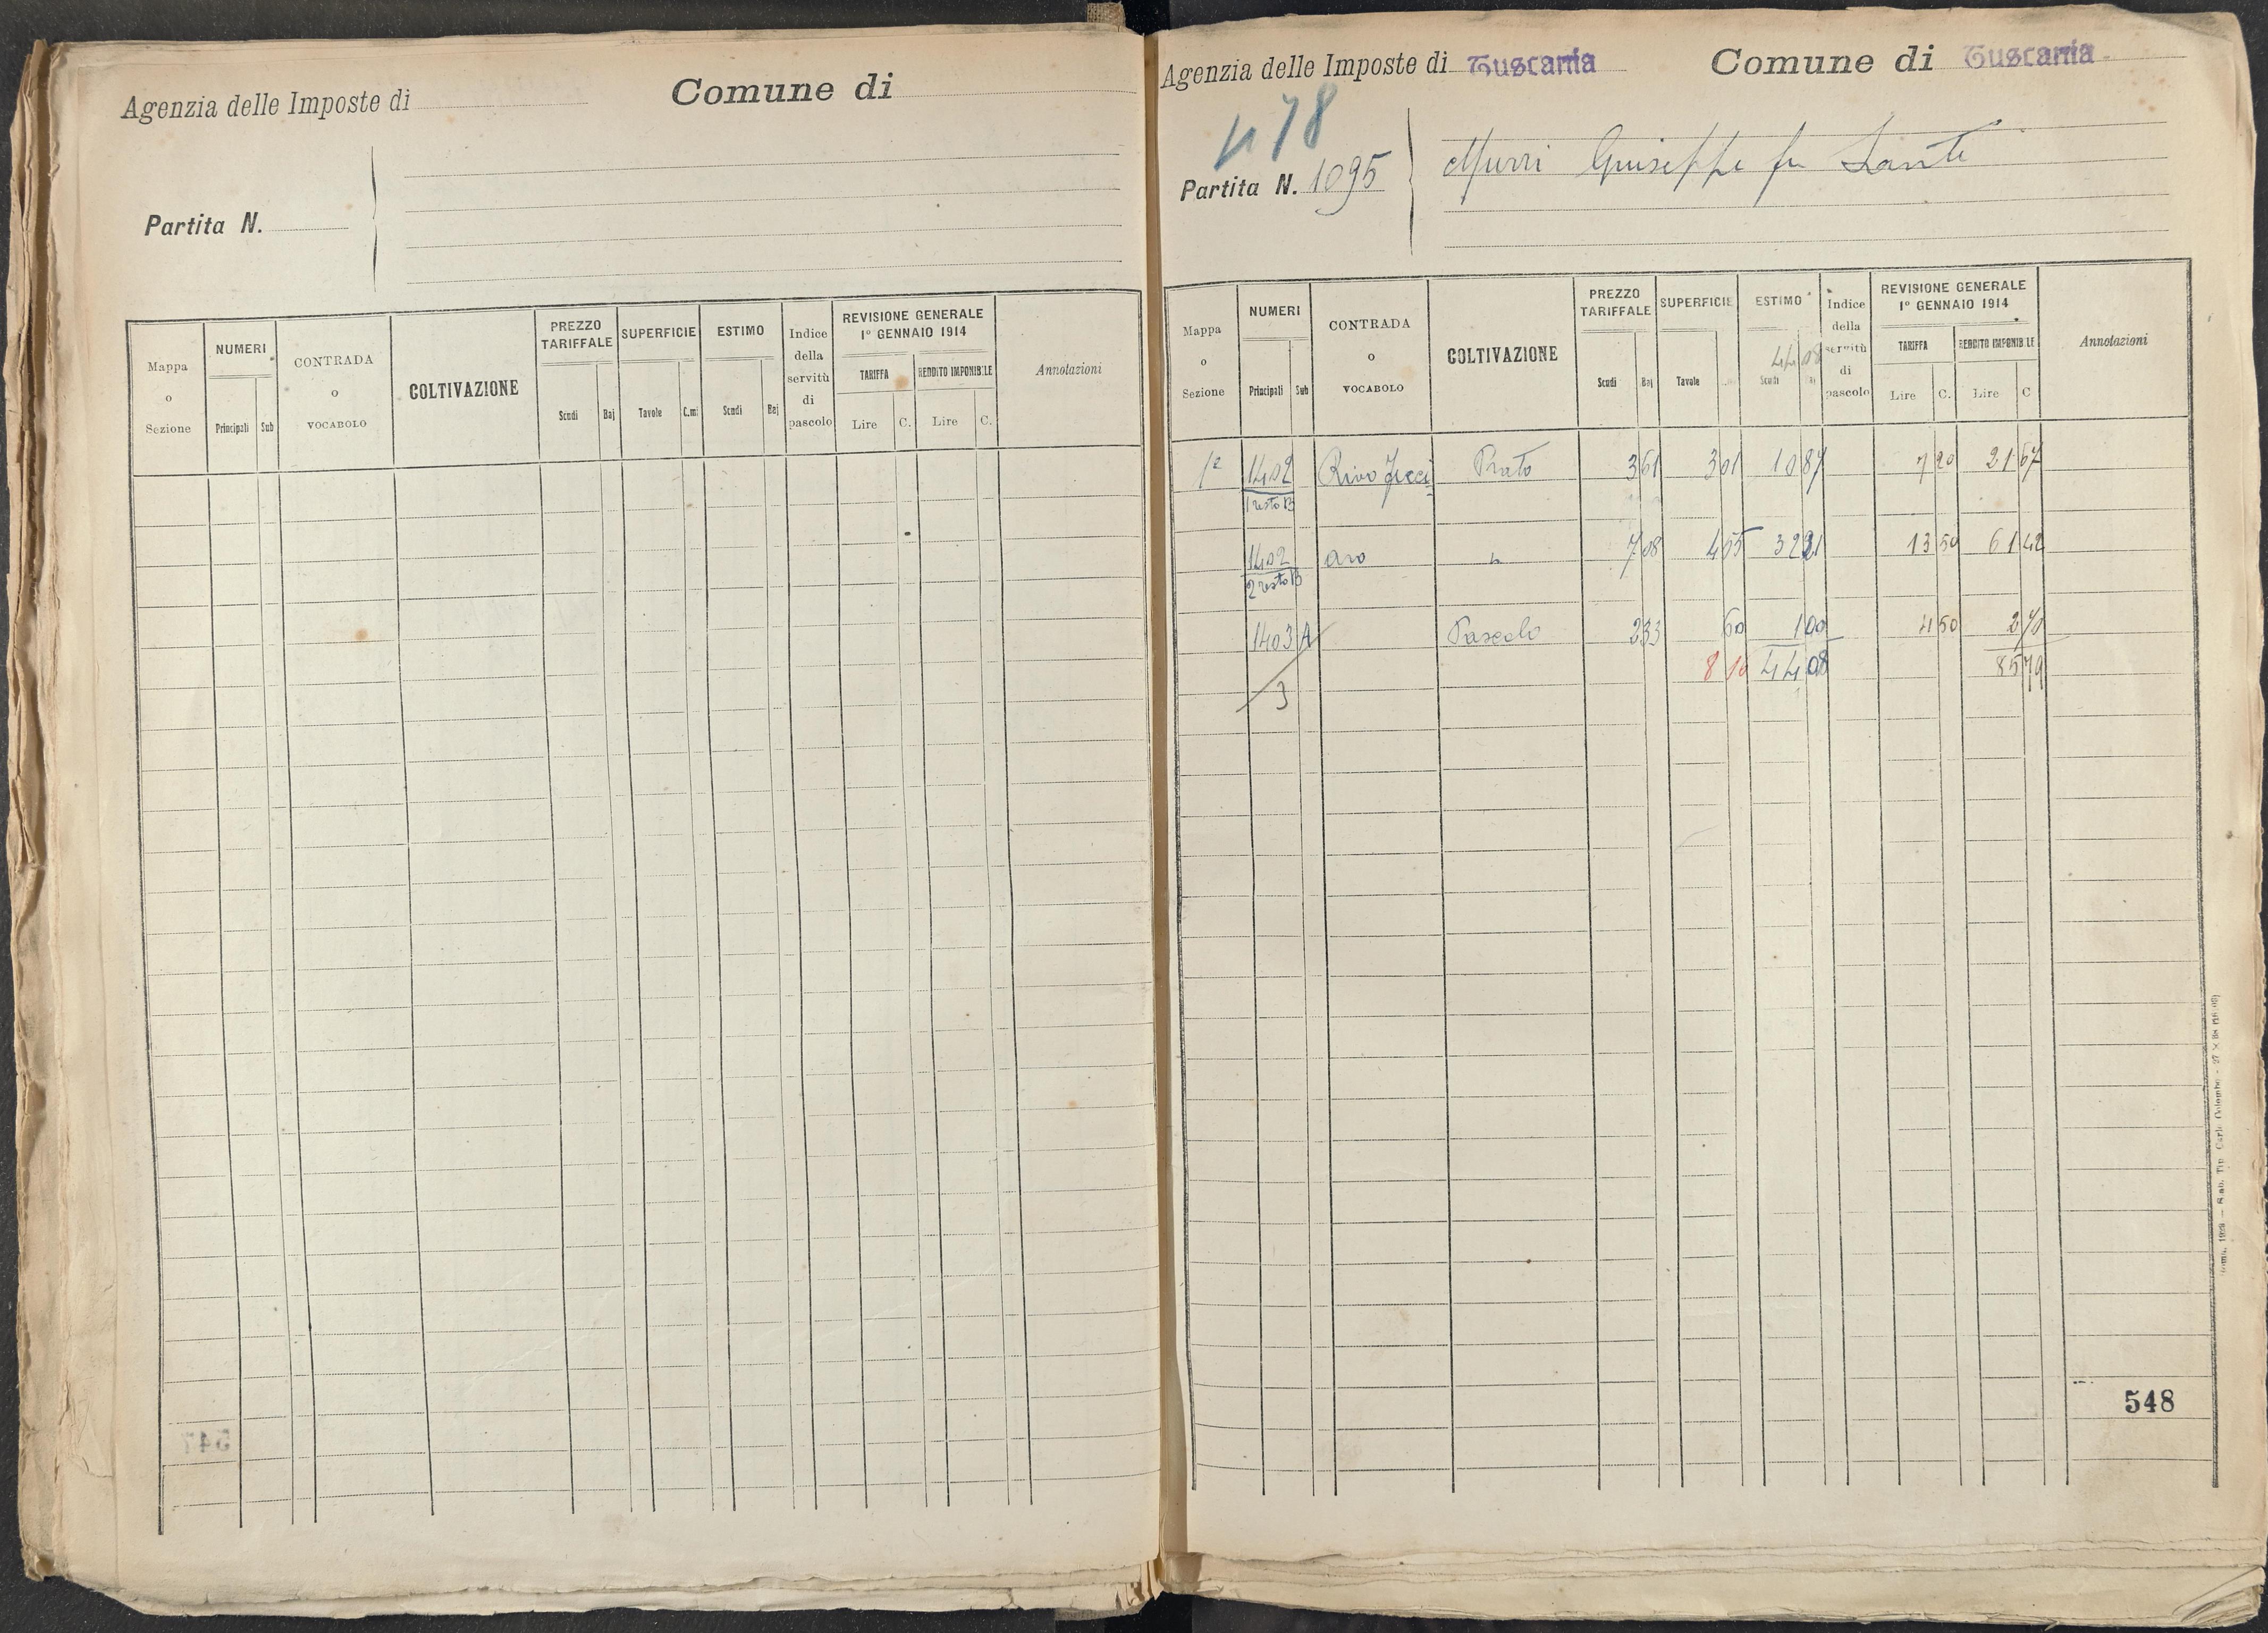 Agenzia delle Imposte di
Comune di
Partita N.
Mappa o Sezione
NUMERI
Principali
Sub
CONTRADA o VOCABOLO
COLTIVAZIONE
PREZZO TARIFFALE
Scudi
Baj
SUPERFICIE
Tavole
C.mi
ESTIMO
Scudi
Baj
Indice della servitù di pascolo
REVISIONE GENERALE
1º GENNAIO 1914
TARIFFA
Lire
C.
REDDITO IMPONIBILE
Lire
C.
Annotazioni
547
Agenzia delle Imposte di Tuscania
Comune di Tuscania
Partita N. 1095
Murri Giuseppe fu Sante
Mappa o Sezione
NUMERI
Principali
Sub
CONTRADA o VOCABOLO
COLTIVAZIONE
PREZZO TARIFFALE
Scudi
Baj
SUPERFICIE
Tavole
ESTIMO
44 08
Scudi
Baj
Indice della servitù di pascolo
REVISIONE GENERALE
1º GENNAIO 1914
TARIFFA
Lire
C.
REDDITO IMPONIBILE
Lire
C
Annotazioni
1ª 1402 Rivo Prato 3 61 3 01 10 87 7 20 21 67
1 resto B
1402 " 7 08 4 55 32 21 13 50 61 42
2 resto B
1403 A Pascolo 2 33 60 1 00 4 50 2 70
8 16 44 08 85 79
3
548